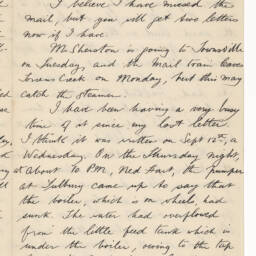 I believe I have missed the
mail, but you will get two letters
now if I have.
Mr Sherston is going to Townsville
on Tuesday, and the Mail train leaves
Torrens Creek on Monday, but this may
catch the steamer.
I have been having a very busy
time of it since my last letter.
I think it was written on Sept 12th, a
Wednesday. On the Thursday night,
at about 10 P.M., Ned Hart, the pumper
at Tilbury came up to say that
the boiler, which is on wheels, had
sunk. The water had overflowed
from the little feed tank which is
under the boiler, owing to the tap